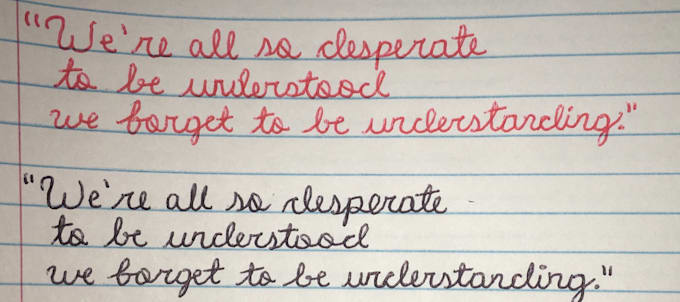 "We're all so desperate
to be understood
we forget to be understanding."
"We're all so desperate
to be understood
we forget to be understanding."